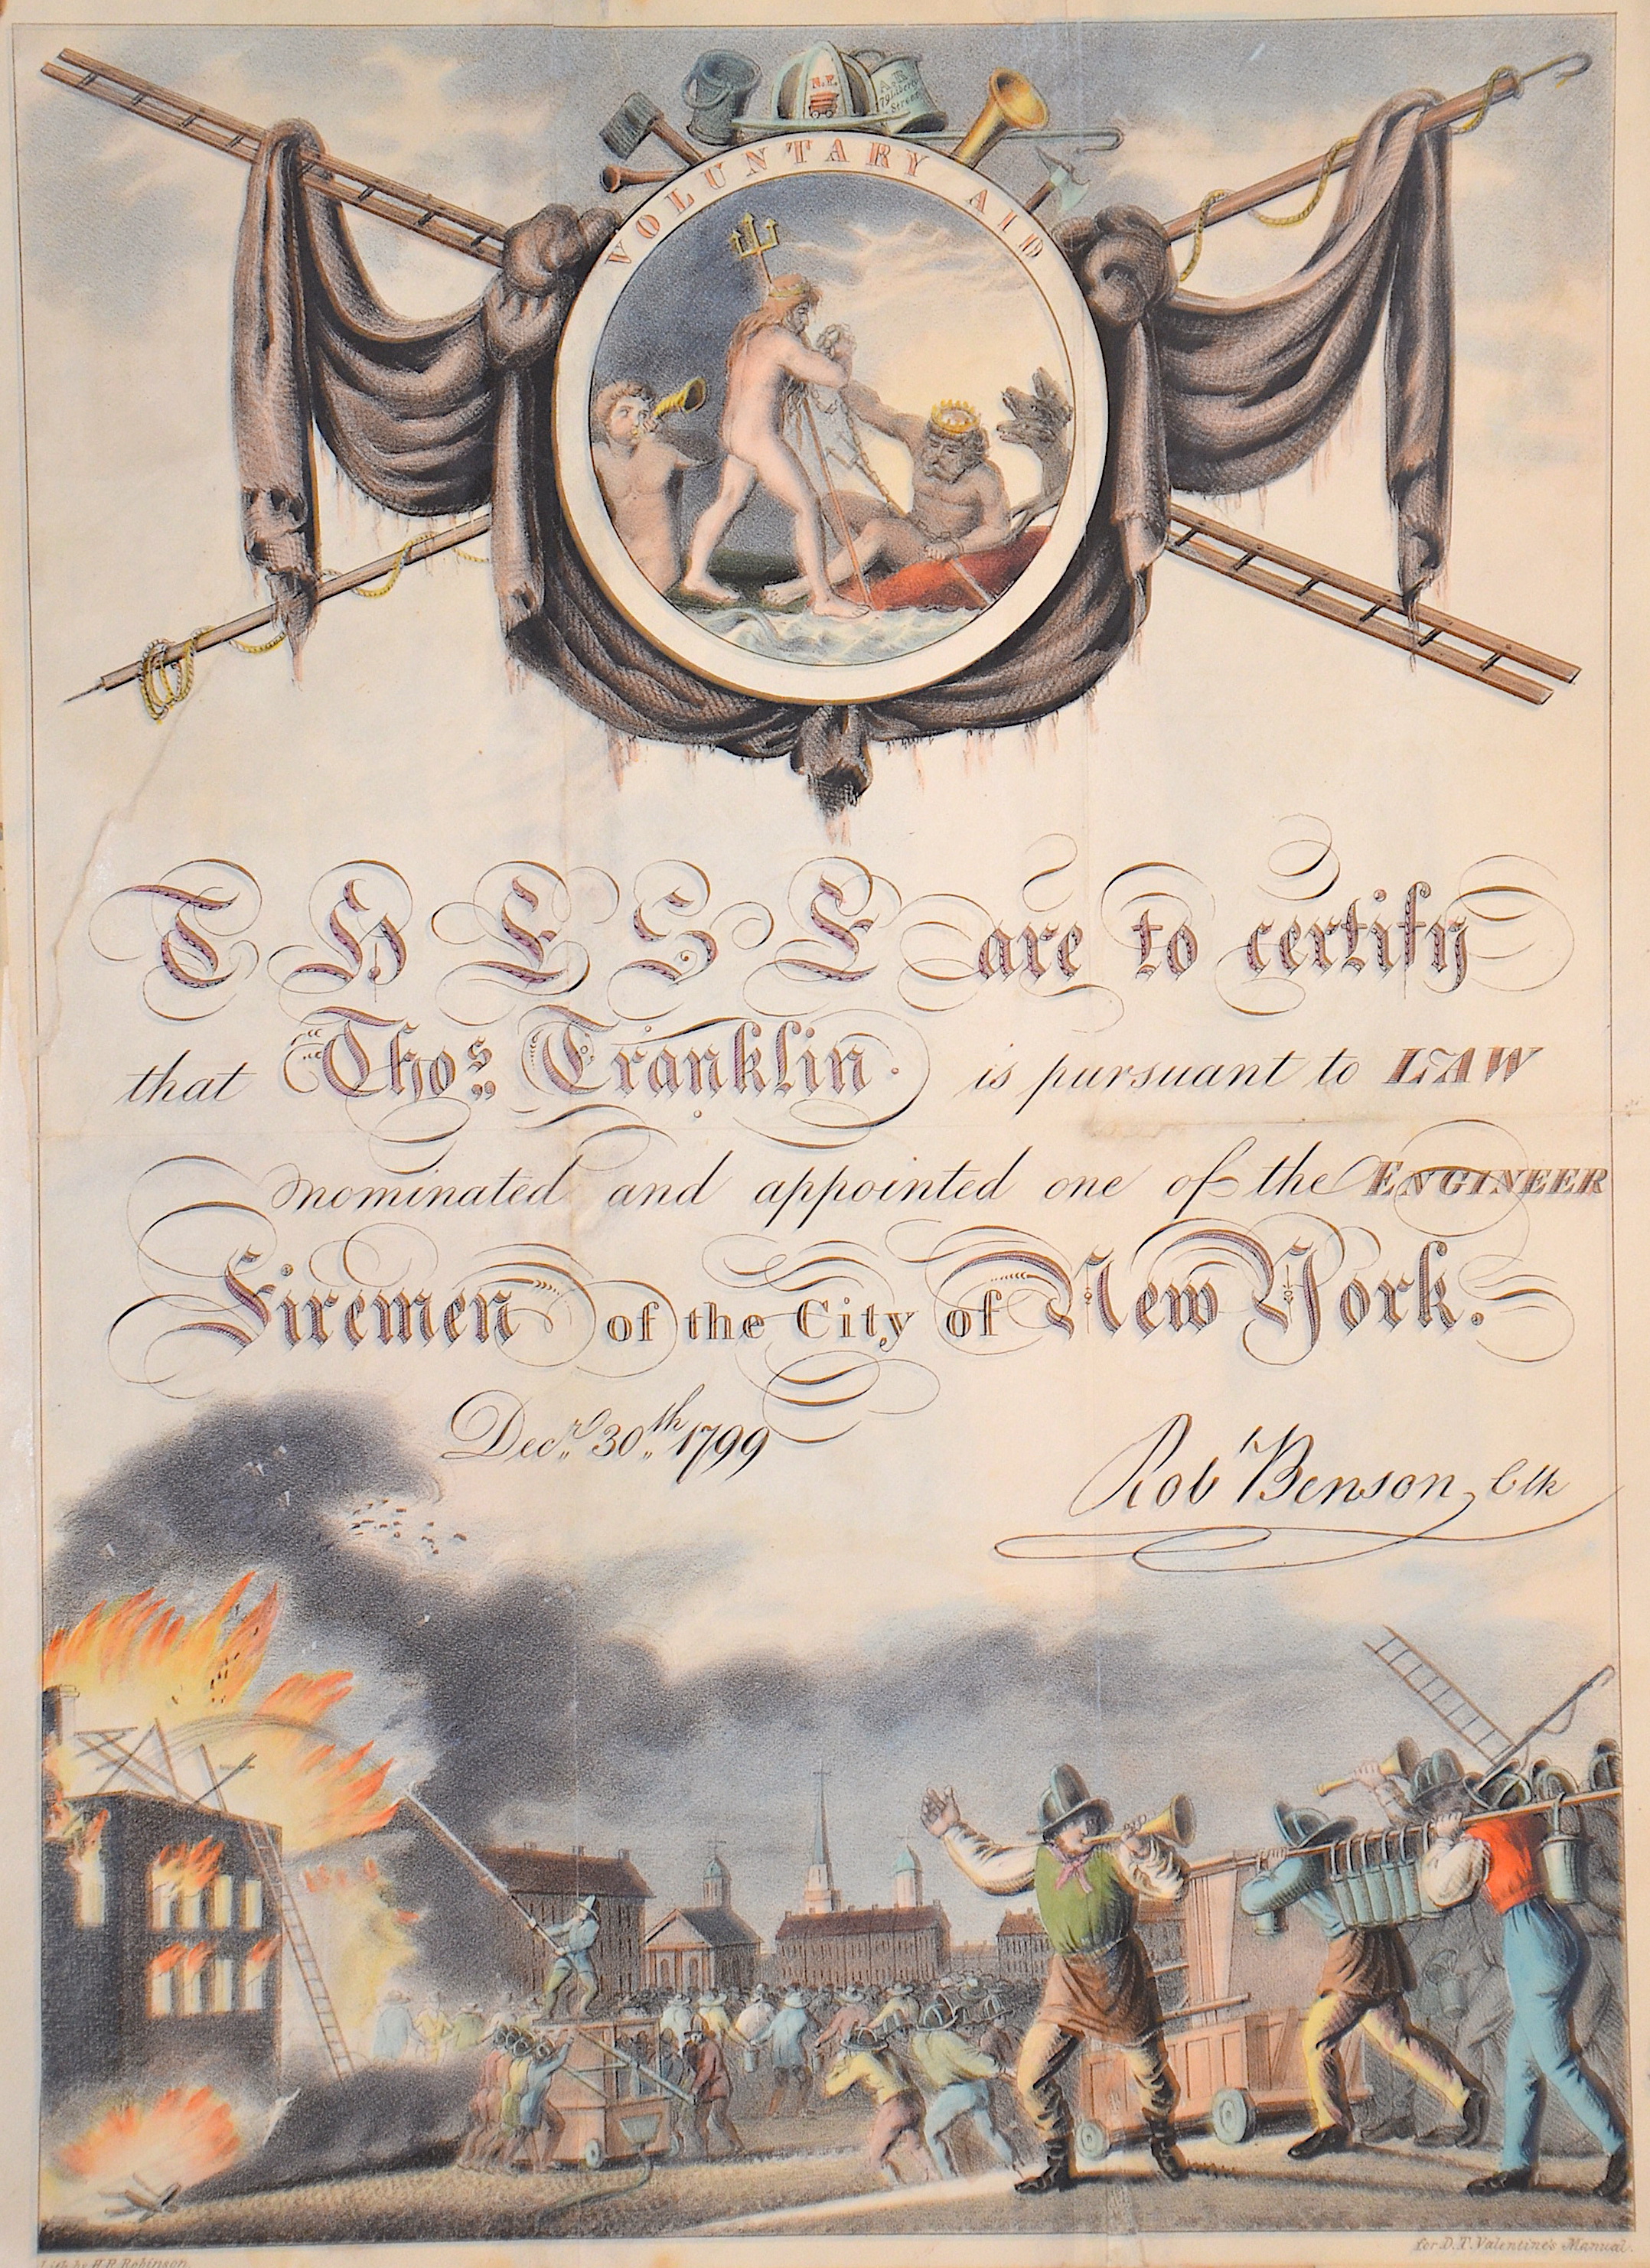 N.F.
VOLUNTARY AID
THESE are to certify
that Thos. Franklin is pursuant to LAW
nominated and appointed one of the ENGINEER
Firemen of the City of New York.
Decr. 30th. 1799
Robt Benson, Clk
Lith. by H.R. Robinson.
for D.T. Valentine's Manual.